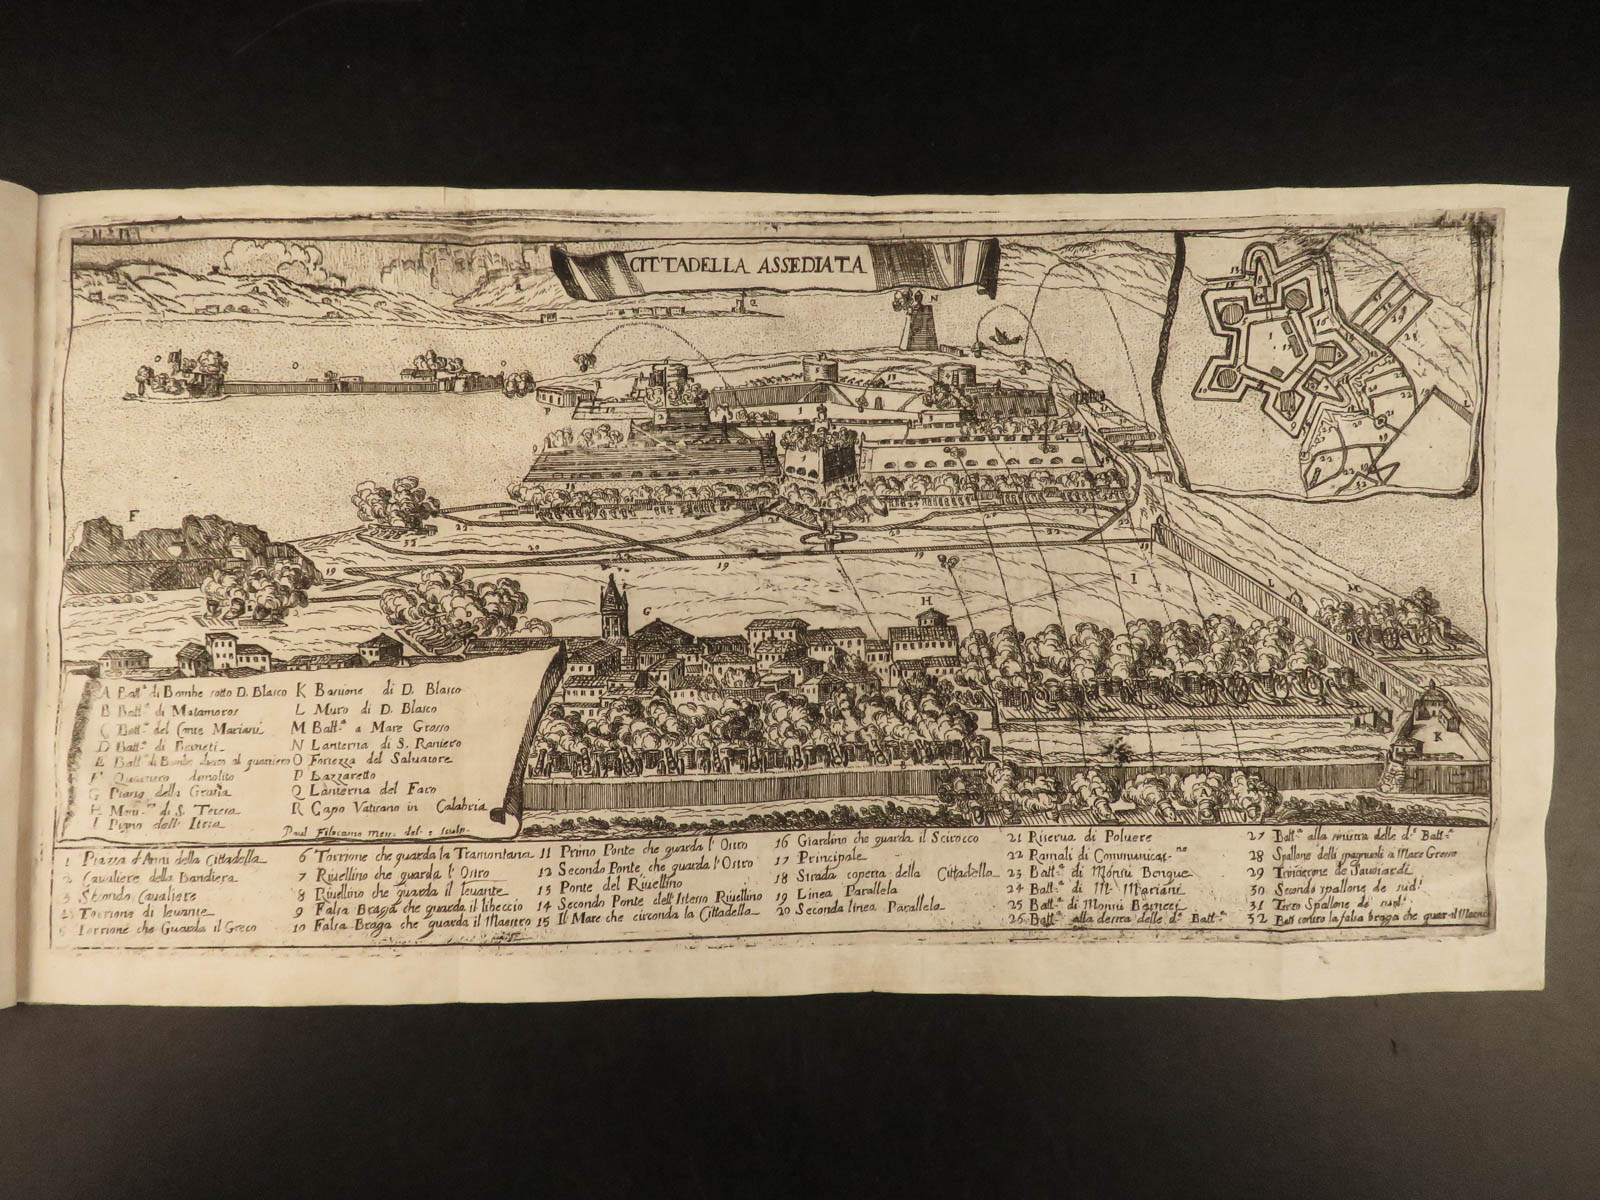 CITTADELLA ASSEDIATA
A Batt.ª di Bombe sotto D. Blasco
B Batt.ª di Matamoros
C Batt.ª del Conte Mariani
D Batt.ª di
E Batt.ª di Bombe al quartiero
F Quartiero demolito
G Piano della
H Mon.rio di S. Teresa
I Piano dell' Itria
K Bastione di D. Blasco
L Muro di D. Blasco
M Batt.ª a Mare Grosso
N Lanterna di S. Raniero
O Fortezza del Salvatore
P Lazzaretto
Q Lanterna del Faro
R Capo Vaticano in Calabria
Paul Filocamo Mess. del. e sculp.
1 Piazza d'Armi della Cittadella
2 Cavaliere della Bandiera
3 Secondo Cavaliere
4 Torrione di levante
5 Torrione che Guarda il Greco
6 Torrione che guarda la Tramontana
7 Rivellino che guarda l'Ostro
8 Rivellino che guarda il levante
9 Falsa Braga che guarda il libeccio
10 Falsa Braga che guarda il Maestro
11 Primo Ponte che guarda l'Ostro
12 Secondo Ponte che guarda l'Ostro
13 Ponte del Rivellino
14 Secondo Ponte dell'istesso Rivellino
15 Il Mare che circonda la Cittadella
16 Giardino che guarda il Scirocco
17 Principale
18 Strada coperta della Cittadella
19 Linea Parallela
20 Seconda linea Parallela
21 Riserva di Polvere
22 Ramali di Communicat.ne
23 Batt.ª di Monsù Bengue
24 Batt.ª di M. Mariani
25 Batt.ª di Monsù
26 Batt.ª alla destra delle d.e Batt.e
27 Batt.ª alla sinistra delle d.e Batt.e
28 Spallone delli spagnuoli à Mare Grosso
29 Trincierone de Savoiardi
30 Secondo spallone de sud.i
31 Terzo Spallone de sud.i
32 Batt contro la falsa braga che guar. il Maes